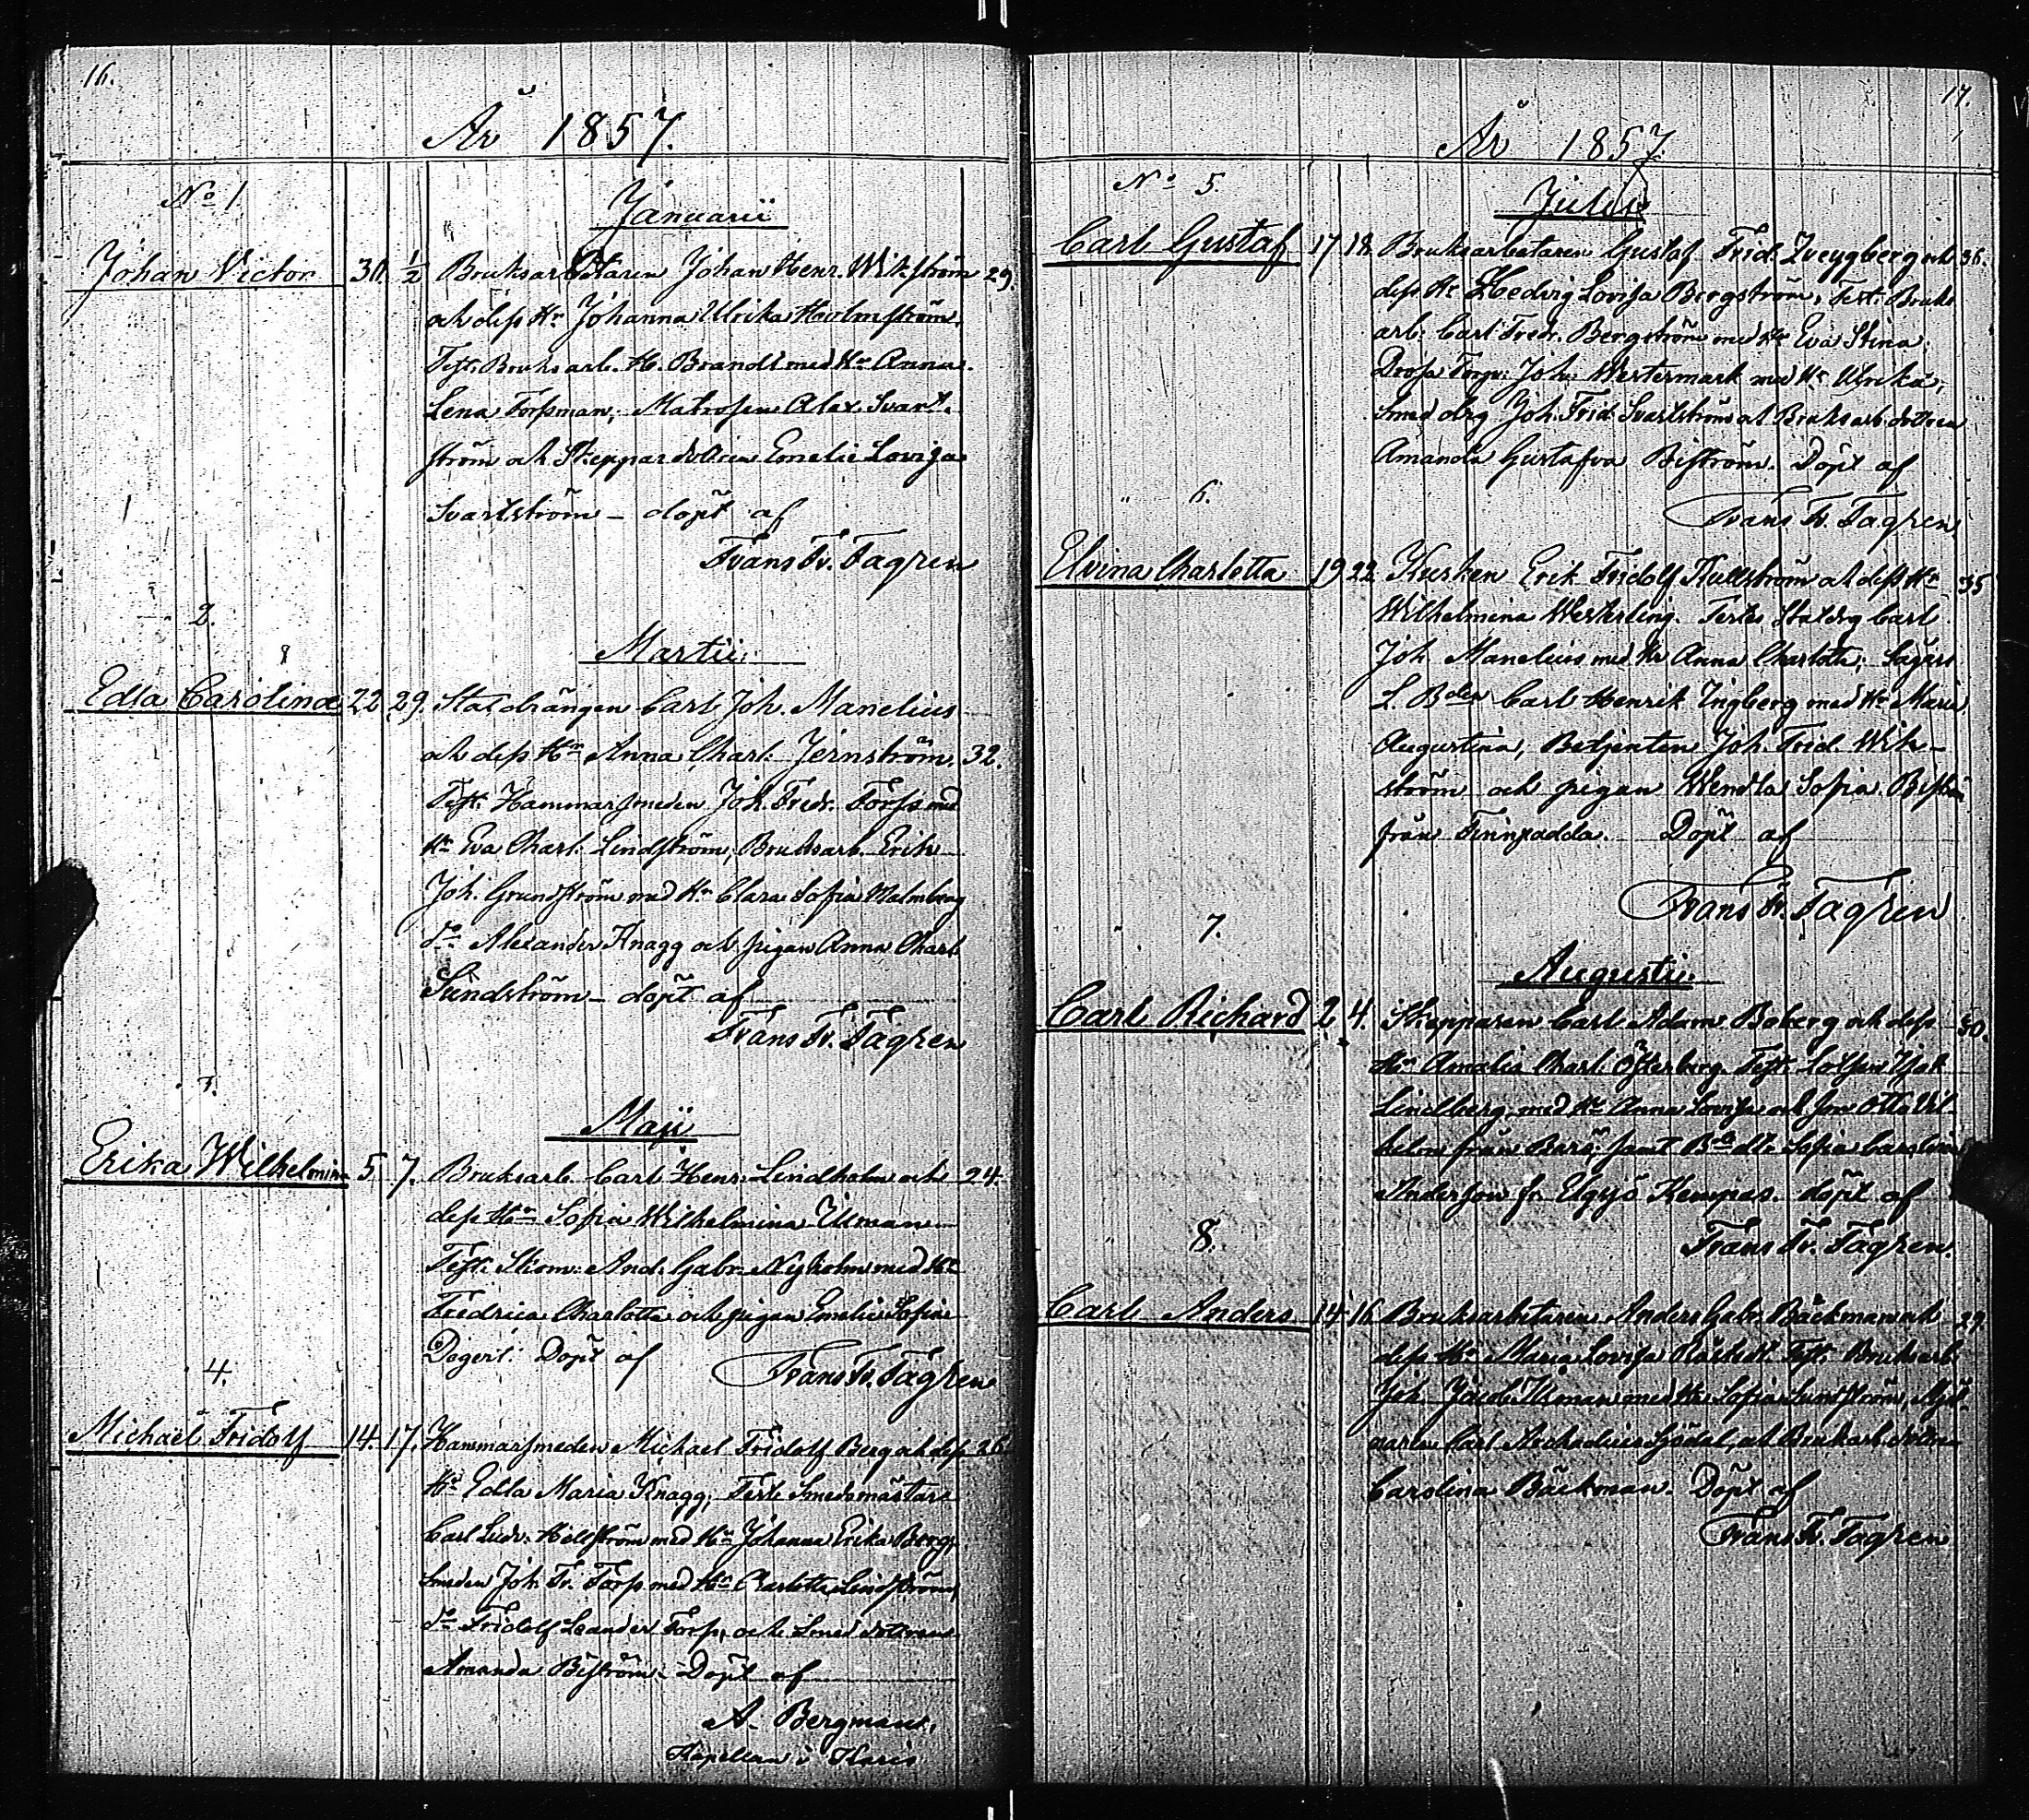 16.
År 1857.
No 1
Januarii
Johan Victor 30. 1/2 Bruksarbetaren Johan Henr. Wikström 29.
och dess Hu Johanna Ulrika Holmström.
Test. Bruksarb. H. Brandt med Hu Anna
Lena Forssman, Matrosen Alex. Svart-
ström och Skeppar dottren Emelie Lovisa
Svartström – döpt af
Frans Fr. Fagren
2.
Martii
Edla Carolina 22 29. Statdrängen Carl Joh. Manelius
och dess Hu Anna Charl. Jernström. 32.
Test. Hammarsmeden Joh. Fredr. Forss med
Hu Eva Charl. Lindström, Bruksarb. Erik
Joh. Grundström med Hu Clara Sofia Malmberg
do Alexander Knagg och pigan Anna Charl.
Sundström – döpt af
Frans Fr. Fagren
3.
Maji
Erika Wilhelmina 5 7. Bruksarb. Carl Henr. Lindholm och 24.
dess Hu Sofia Wilhelmina Uman
Test. And. Gabr. Nyholm med Hu
Fredrica Charlotta och pigan Emelie Sofia
Degert. Döpt af Frans Fr. Fagren
4.
Michaël Fridolf 14. 17. Hammarsmeden Michael Fridolf Berg och dess 26.
Hu Edla Maria Knagg, Test. Smedsmästar
Carl Ludv. Hellström med Hu Johanna Erika Berg,
Smeden Joh. Fr. Forss med Hu Charlotta Lindström,
do Fridolf Leander Forss, och Smed dottren
Amanda Biström – Döpt af
A. Bergman,
Kapellan i Karis
17.
År 1857
No 5
Julii
Carl Gustaf 17 18. Bruksarbetaren Gustaf Frid. Zveygberg och 36.
dess Hu Hedvig Lovisa Bergström, Test. Bruks
arb. Carl Fredr. Bergström med Hu Eva Stina,
Torpn. Joh. Westermark med Hu Ulrika,
Smed drg Joh. Frid. Svartström och Bruksarb. dottren
Amanda Gustafva Biström. Döpt af
Frans Fr. Fagren
" 6.
Elvina Charlotta 19 22. Kusken Erik Fridolf Kullström och dess Hu 35
Wilhelmina Westerling. Testes Statdrg Carl
Joh. Manelius med Hu Anna Charlotta,
Bden Carl Henrik Ingberg med Hu Maria
Augustina, Betjenten Joh. Frid. Wik-
ström och pigan Wendla Sofia Biström
från Finnpadda. Döpt af
Frans Fr. Fagren
" 7.
Augusti
Carl Richard 2 4. Skepparen Carl Adam Boberg och dess 30.
Hu Amalia Charl. Österberg. Test. Lotsen Isak
Lindberg med Hu Anna Lovisa och son Otto Vil-
helm från Barö, samt Bde dtr Sofia Carolina
Andersson fr. Elgsjö Kempas. döpt af
Frans Fr. Fagren.
8.
Carl Anders 14 16. Bruksarbetaren Anders Gabr. Bäckman och 29.
dess Hu Maria Lovisa Test. Bruksarb.
Joh. Jacob Uman med Hu Sofia Sundström, Mjöl-
naren Carl Archadius Sjödal, och Bruksarb. dottren
Carolina Bäckman. Döpt af
Frans Fr. Fagren